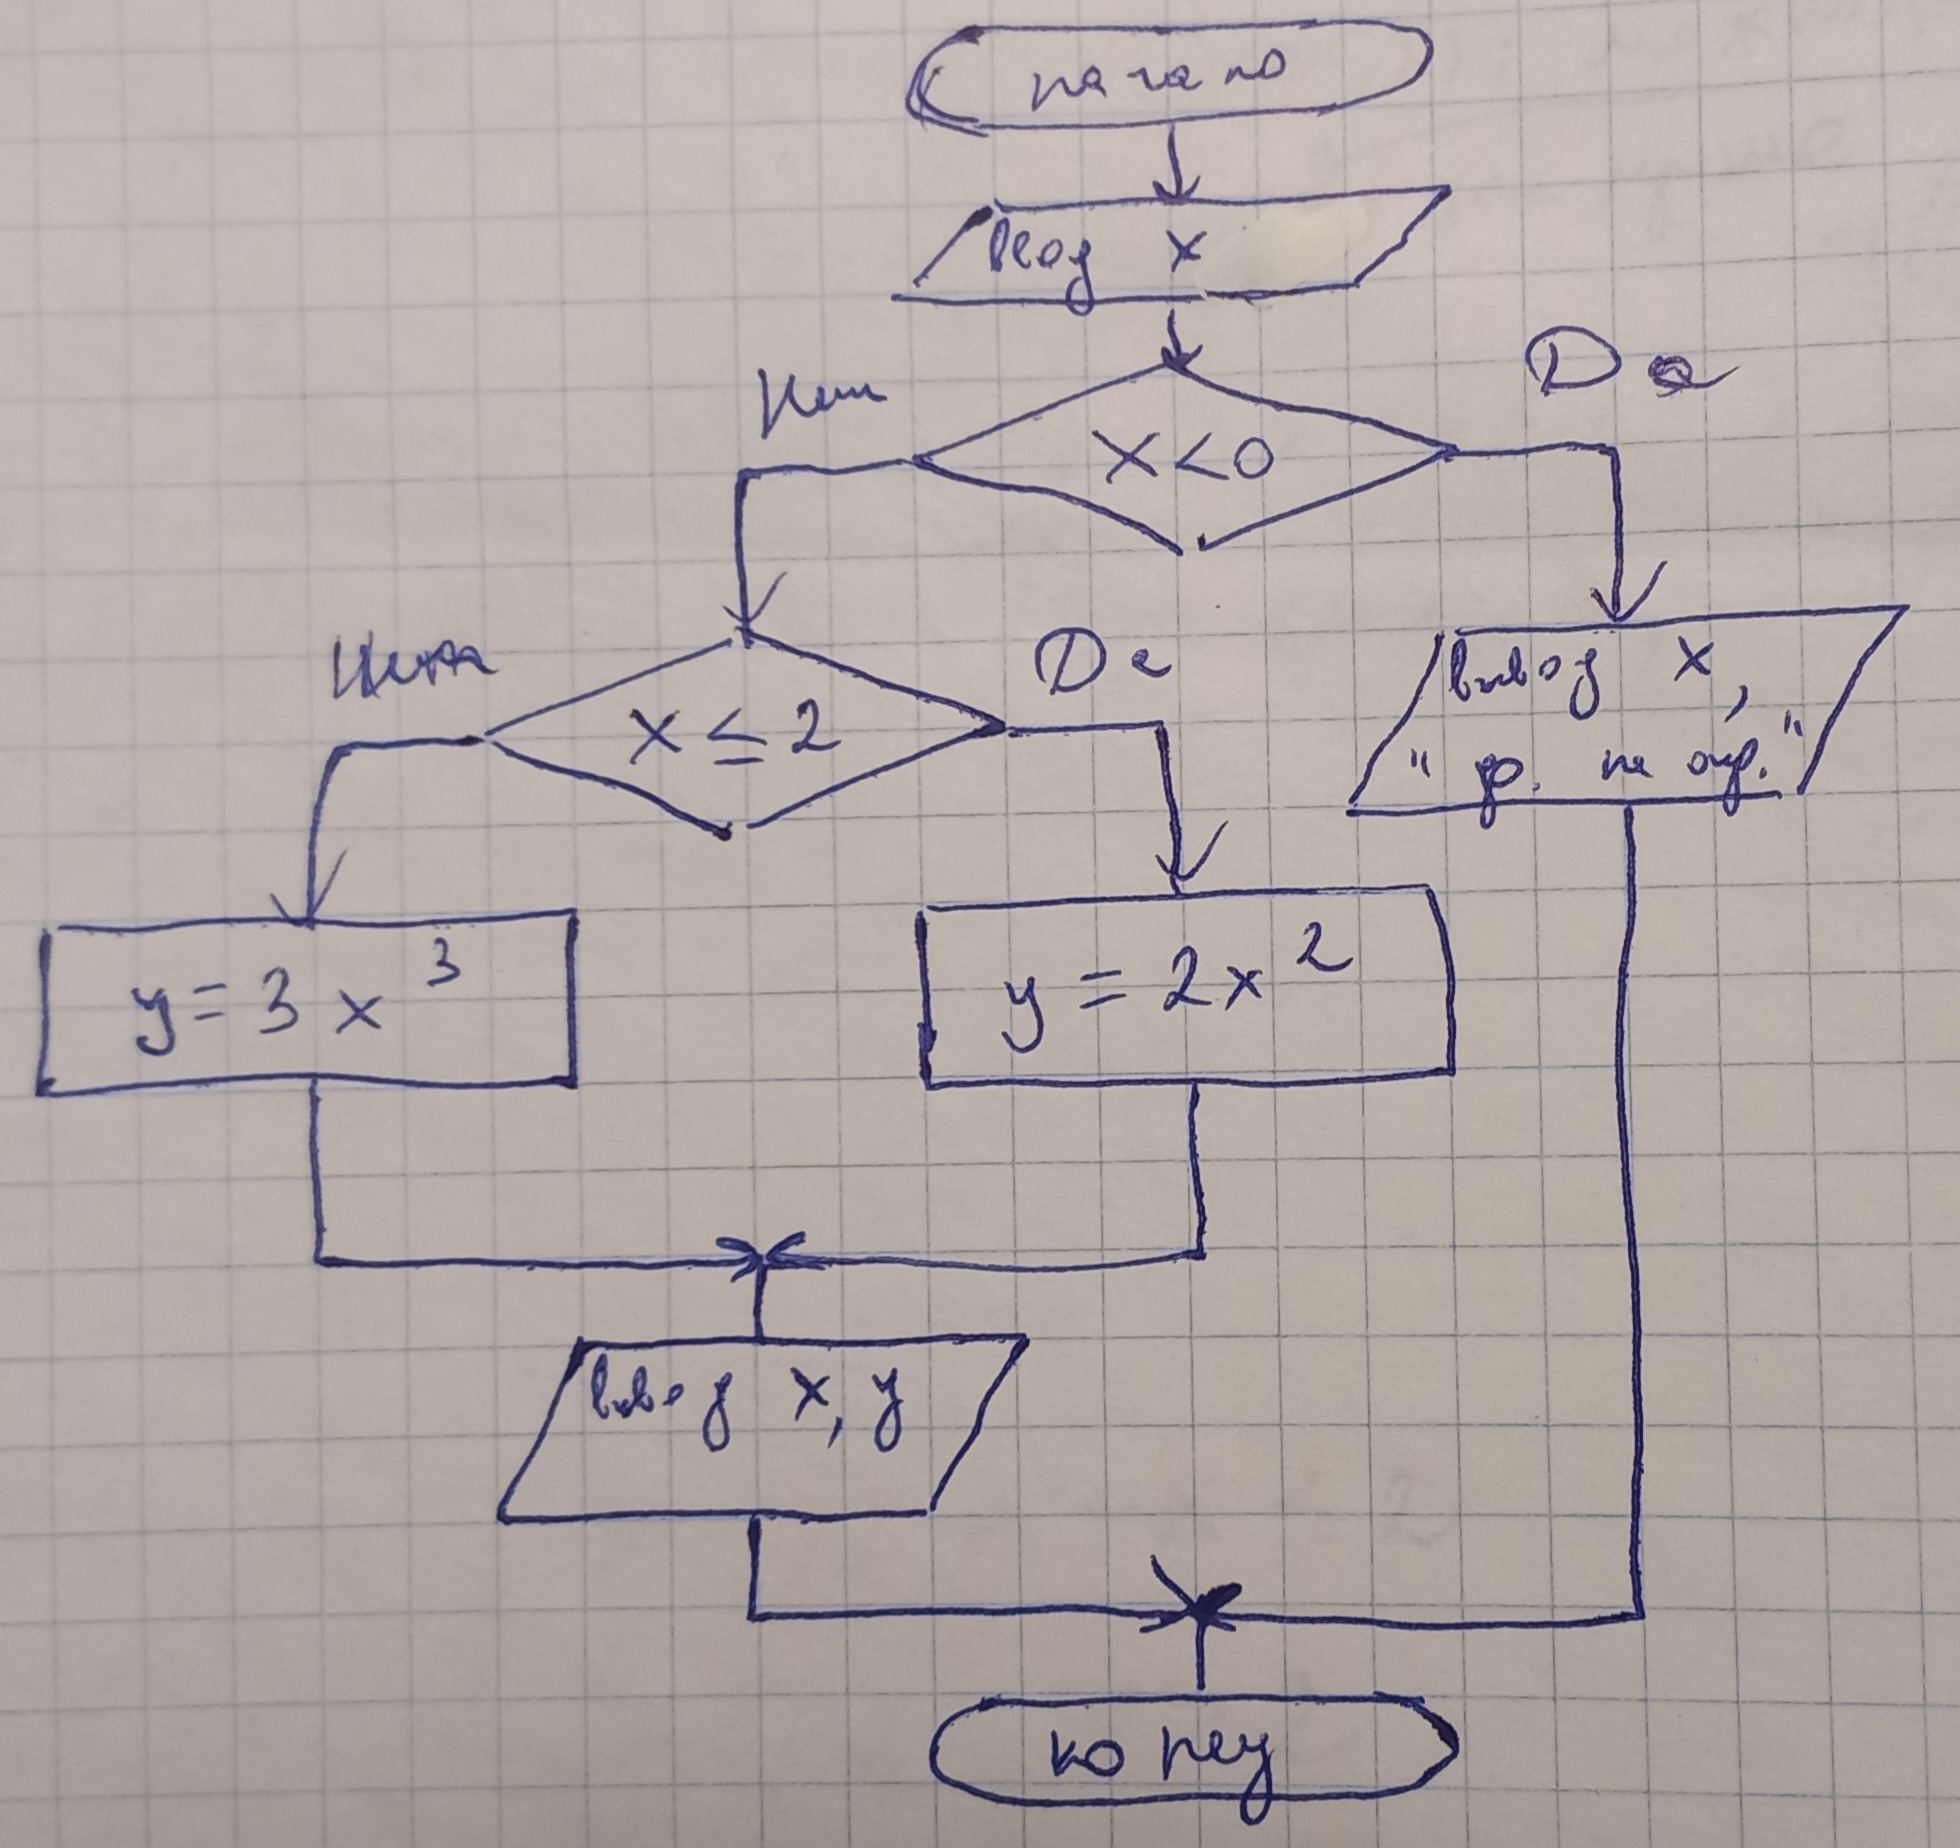 начало
ввод x
Нет
Да
x<0
Нет
Да
x ≤ 2
вывод x,
"ф. не опр."
y = 3x³
y = 2x²
вывод x, y
конец